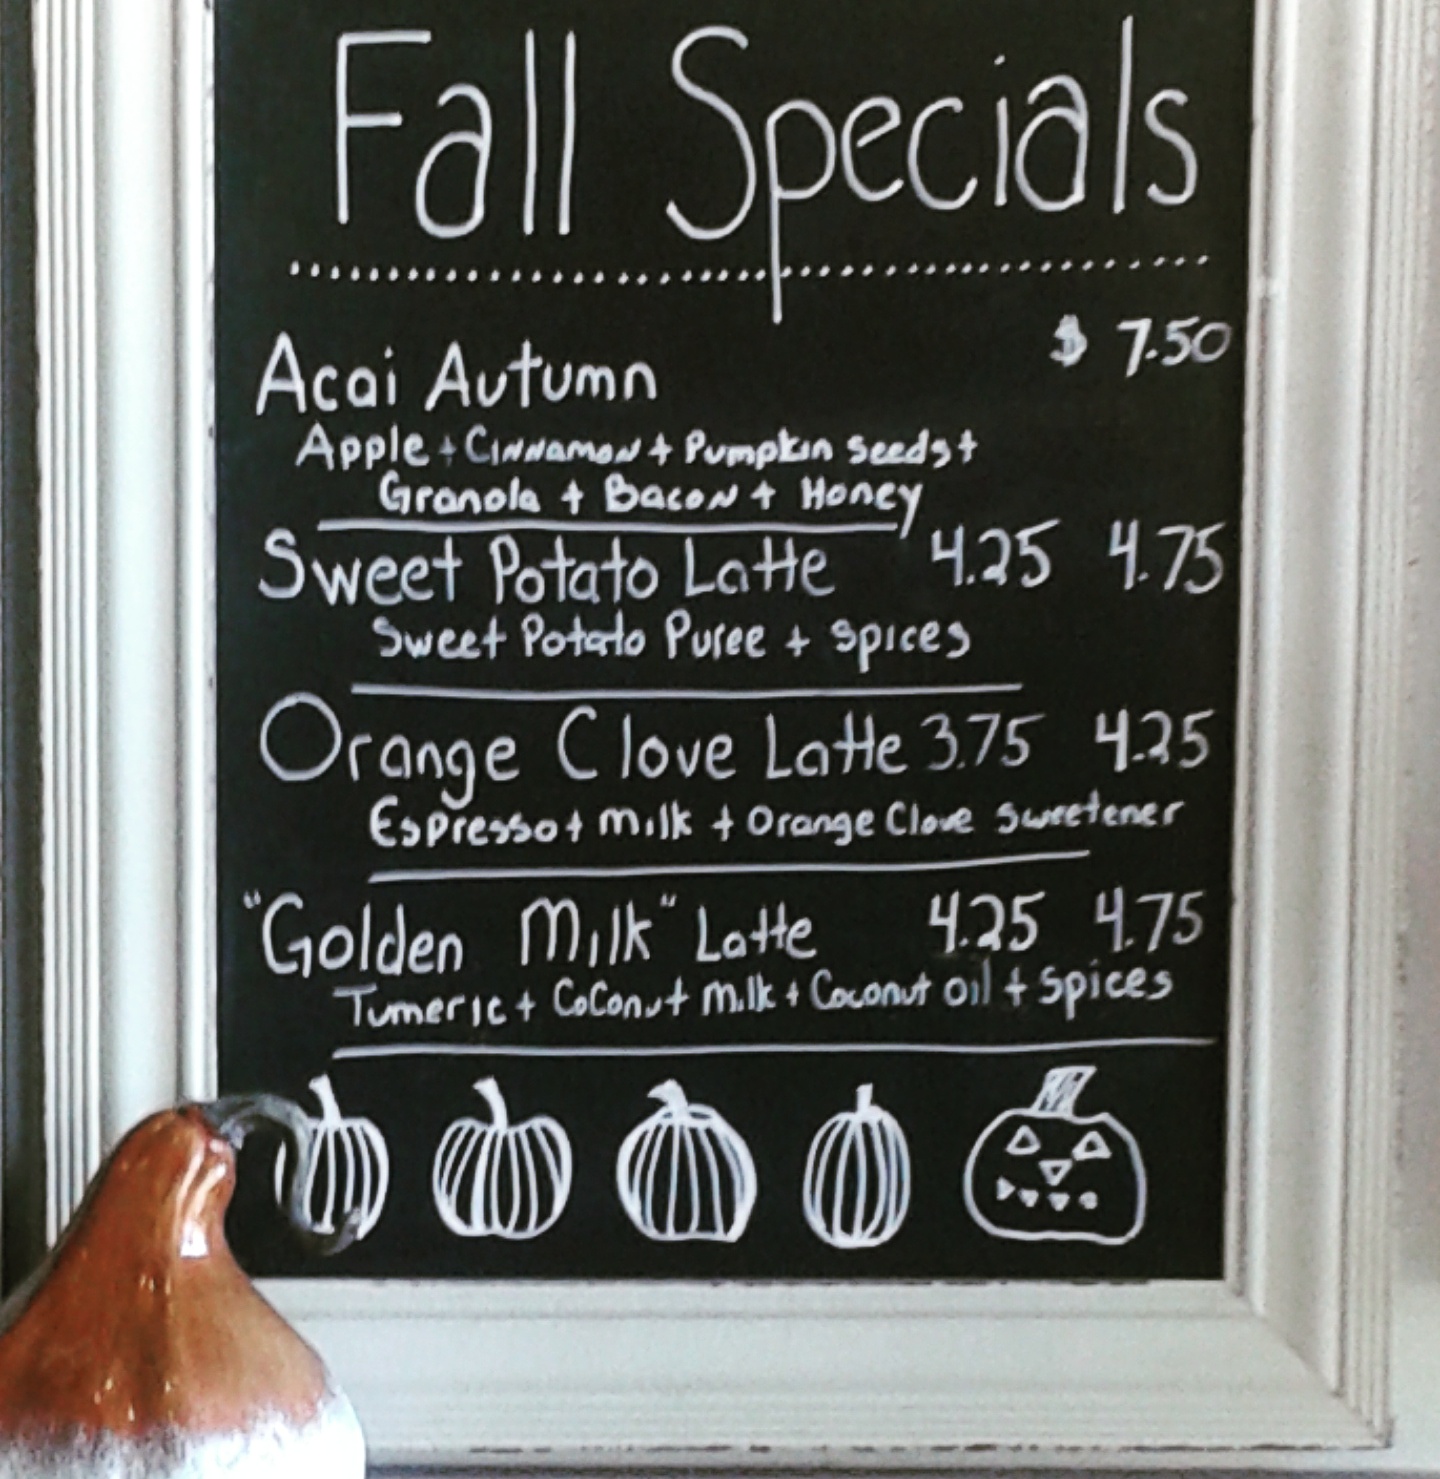 Fall Specials
Acai Autumn $ 7.50
Apple + Cinnamon + Pumpkin Seeds +
Granola + Bacon + Honey
Sweet Potato Latte 4.25 4.75
Sweet Potato Puree + Spices
Orange Clove Latte 3.75 4.25
Espresso + Milk + Orange Clove Sweetener
"Golden Milk" Latte 4.25 4.75
Tumeric + Coconut Milk + Coconut oil + Spices